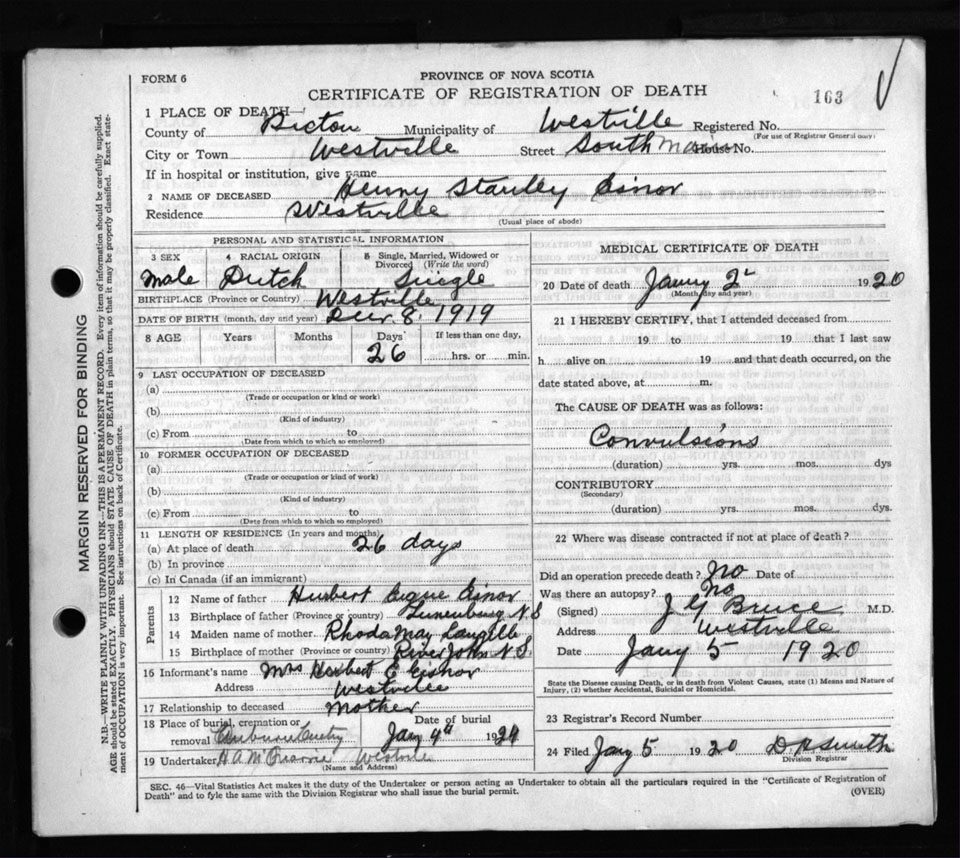 FORM 6
PROVINCE OF NOVA SCOTIA
CERTIFICATE OF REGISTRATION OF DEATH
163
1 PLACE OF DEATH
County of Pictou Municipality of Westville Registered No.
(For use of Registrar General only)
City or Town Westville Street South Main House No.
If in hospital or institution, give name
2 NAME OF DECEASED Henry Stanley Eisnor
Residence Westville
(Usual place of abode)
PERSONAL AND STATISTICAL INFORMATION
3 SEX 4 RACIAL ORIGIN 5 Single, Married, Widowed or Divorced (Write the word)
Male Dutch Single
BIRTHPLACE (Province or Country) Westville
DATE OF BIRTH (month, day and year) Decr 8. 1919
8 AGE Years Months Days If less than one day,
26 hrs. or min.
9 LAST OCCUPATION OF DECEASED
(a)
(Trade or occupation or kind or work)
(b)
(Kind of industry)
(c) From to
(Date from which to which so employed)
10 FORMER OCCUPATION OF DECEASED
(a)
(Trade or occupation or kind of work)
(b)
(Kind of industry)
(c) From to
(Date from which to which so employed)
11 LENGTH OF RESIDENCE (In years and months)
(a) At place of death 26 days
(b) In province
(c) In Canada (if an immigrant)
Parents
12 Name of father Herbert Eisnor
13 Birthplace of father (Province or country) Lunenburg N.S
14 Maiden name of mother Rhoda May Langille
15 Birthplace of mother (Province or country) River John N.S.
16 Informant's name Mrs Herbert E Eisnor
Address Westville
17 Relationship to deceased Mother
18 Place of burial, cremation or removal Date of burial
Jany 4th 1920
19 Undertaker Westville
(Name and Address)
MEDICAL CERTIFICATE OF DEATH
20 Date of death Jany 2 1920
(Month day and year)
21 I HEREBY CERTIFY, that I attended deceased from
19 to 19 that I last saw
h alive on 19 and that death occurred, on the
date stated above, at m.
The CAUSE OF DEATH was as follows:
Convulsions
(duration) yrs. mos. dys
CONTRIBUTORY
(Secondary)
(duration) yrs. mos. dys.
22 Where was disease contracted if not at place of death?
Did an operation precede death? No Date of
Was there an autopsy? No
(Signed) J G Bruce M.D.
Address Westville
Date Jany 5 1920
State the Disease causing Death, or in death from Violent Causes, state (1) Means and Nature of
Injury, (2) whether Accidental, Suicidal or Homicidal.
23 Registrar's Record Number
24 Filed Jany 5 1920 D. R Smith
Division Registrar
SEC. 46—Vital Statistics Act makes it the duty of the Undertaker or person acting as Undertaker to obtain all the particulars required in the "Certificate of Registration of
Death" and to fyle the same with the Division Registrar who shall issue the burial permit.
(OVER)
MARGIN RESERVED FOR BINDING
N.B.—WRITE PLAINLY WITH UNFADING INK—THIS IS A PERMANENT RECORD. Every item of information should be carefully supplied.
AGE should be stated EXACTLY. PHYSICIANS should STATE CAUSE OF DEATH in plain terms, so that it may be properly classified. Exact statement of OCCUPATION is very important. See instructions on back of Certificate.